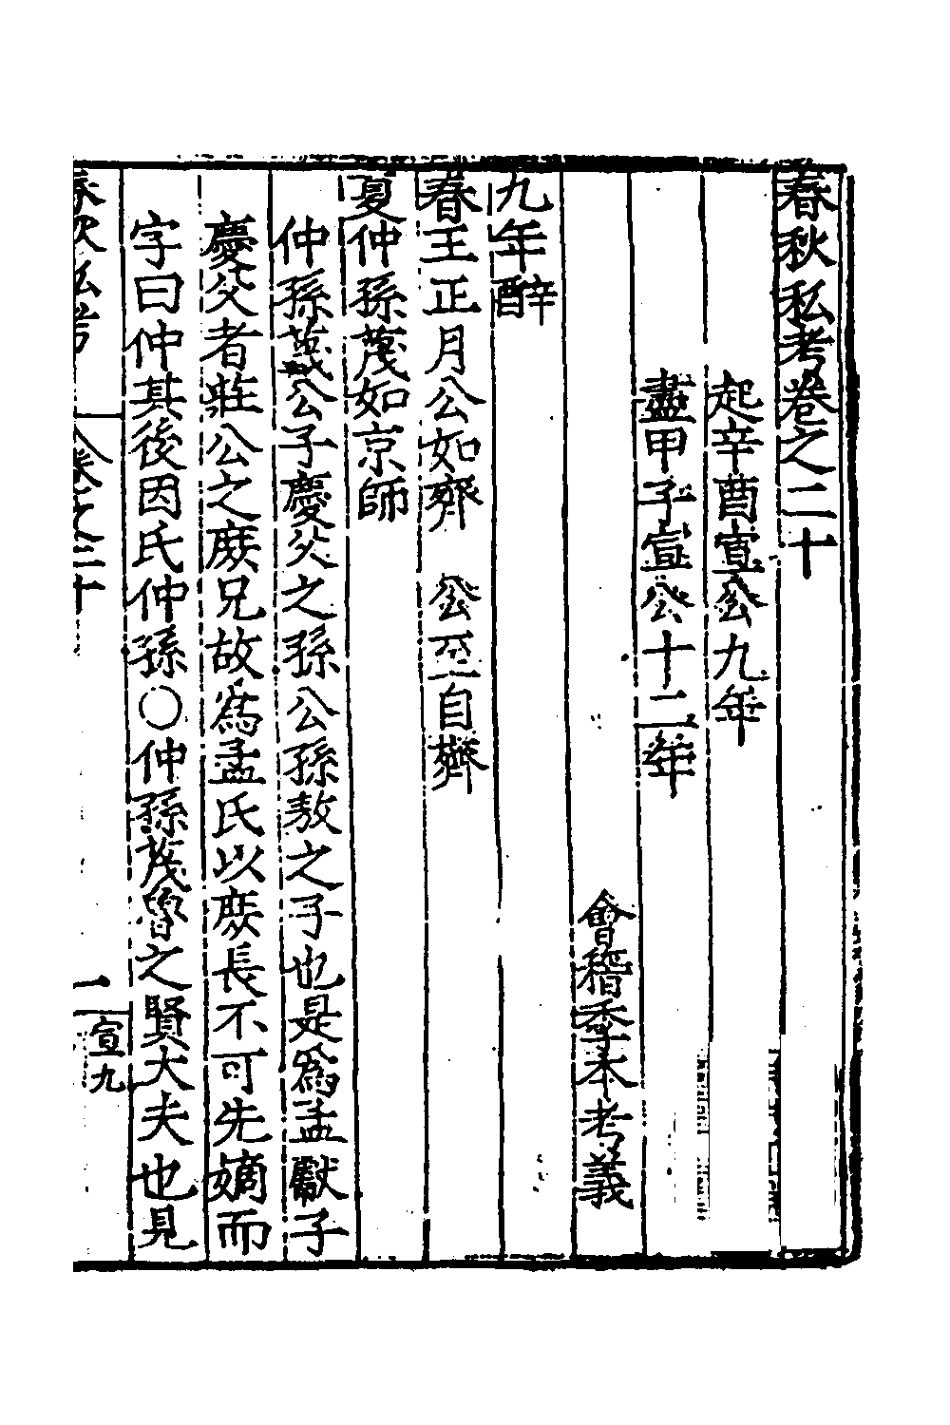 春秋私考卷之二十
起辛酉宣公九年
盡甲子宣公十二年
會稽季本考義
九年辭
春王正月公如齊　公至自齊
夏仲孫蔑如京師
仲孫蔑公子慶父之孫公孫敖之子也是爲孟獻子
慶父者莊公之庶兄故爲孟氏以庶長不可先嫡而
字曰仲其後因氏仲孫○仲孫蔑魯之賢大夫也見
春秋私考　卷之二十　一　宣九